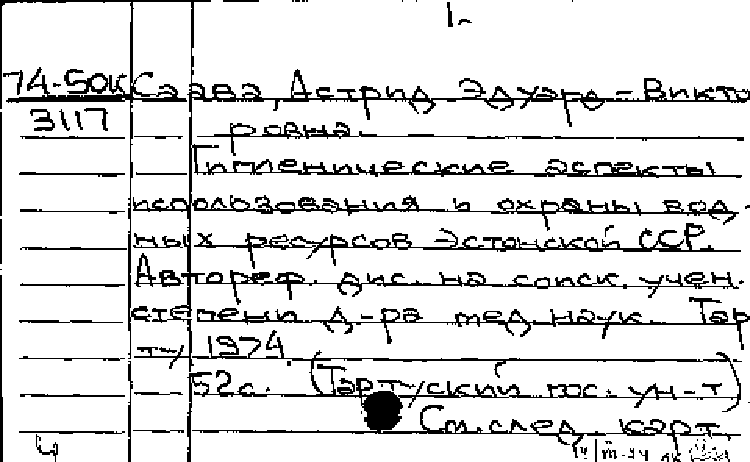 1.
74-50к Саава, Астрид Эдуард-Викто
3117
ровна.
Гигиенические аспекты
использования и охраны вод-
ных ресурсов Эстонской ССР.
Автореф. дис. на соиск. учен.
степени д-ра мед. наук. Тар
ту, 1974.
52с. (Тартуский гос. ун-т)
См. след. карт.
4